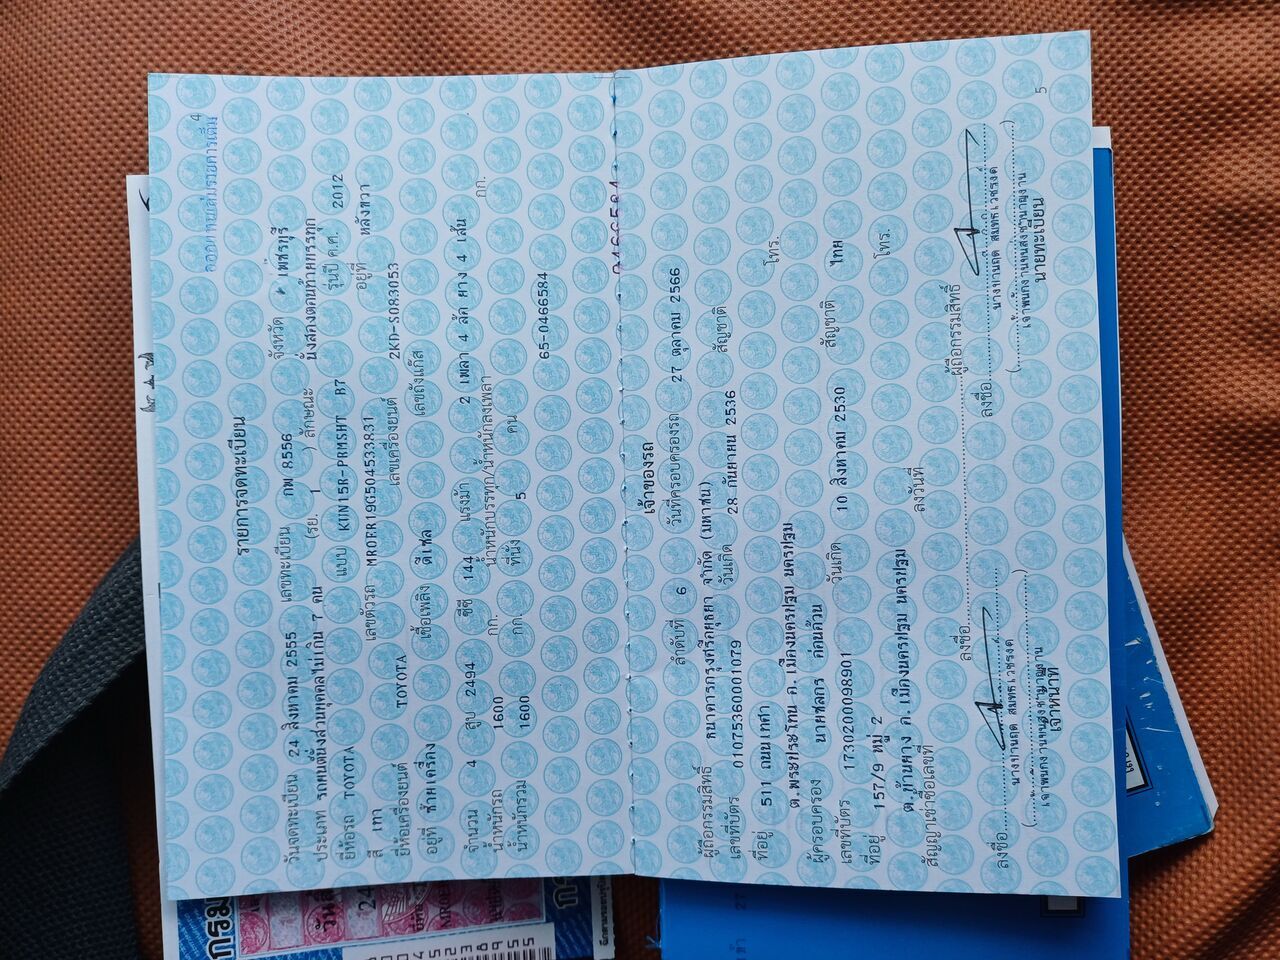 4
รายการจดทะเบียน
วันจดทะเบียน 24 สิงหาคม 2555 เลขทะเบียน กพ 8556 จังหวัด เพชรบุรี
ประเภท รถยนต์นั่งส่วนบุคคลไม่เกิน 7 คน (รย. 1 ) ลักษณะ นั่งสองตอนท้ายบรรทุก
ยี่ห้อรถ TOYOTA แบบ KUN15R-PRMSHT B7 รุ่นปี ค.ศ. 2012
สี เทา เลขตัวรถ MR0ER19G504533831 อยู่ที่ หลังขวา
ยี่ห้อเครื่องยนต์ TOYOTA เลขเครื่องยนต์ 2KD-S083053
อยู่ที่ ซ้ายเครื่อง เชื้อเพลิง ดีเซล เลขถังแก๊ส
จำนวน 4 สูบ 2494 ซีซี 144 แรงม้า 2 เพลา 4 ล้อ ยาง 4 เส้น
น้ำหนักรถ 1600 กก. น้ำหนักบรรทุก/น้ำหนักลงเพลา กก.
น้ำหนักรวม 1600 กก. ที่นั่ง 5 คน
65-0466584
เจ้าของรถ
ลำดับที่ 6 วันที่ครอบครองรถ 27 ตุลาคม 2566
ผู้ถือกรรมสิทธิ์ ธนาคารกรุงศรีอยุธยา จำกัด (มหาชน)
เลขที่บัตร 01075360001079 วันเกิด 28 กันยายน 2536 สัญชาติ
ที่อยู่ 511 ถนนเทศา โทร.
ต.พระประโทน อ.เมืองนครปฐม นครปฐม
ผู้ครอบครอง นายชลกร ค่อนก้วน
เลขที่บัตร 1730200098901 วันเกิด 10 สิงหาคม 2530 สัญชาติ ไทย
ที่อยู่ 157/9 หมู่ 2 โทร.
ต.บ้านยาง อ.เมืองนครปฐม นครปฐม
สัญญาเช่าซื้อเลขที่ ลงวันที่
ลงชื่อ ผู้ถือกรรมสิทธิ์
ลงชื่อ ลงชื่อ
เจ้าพนักงานขนส่งชำนาญงาน เจ้าพนักงานขนส่งชำนาญงาน
เจ้าหน้าที่ นายทะเบียน
5